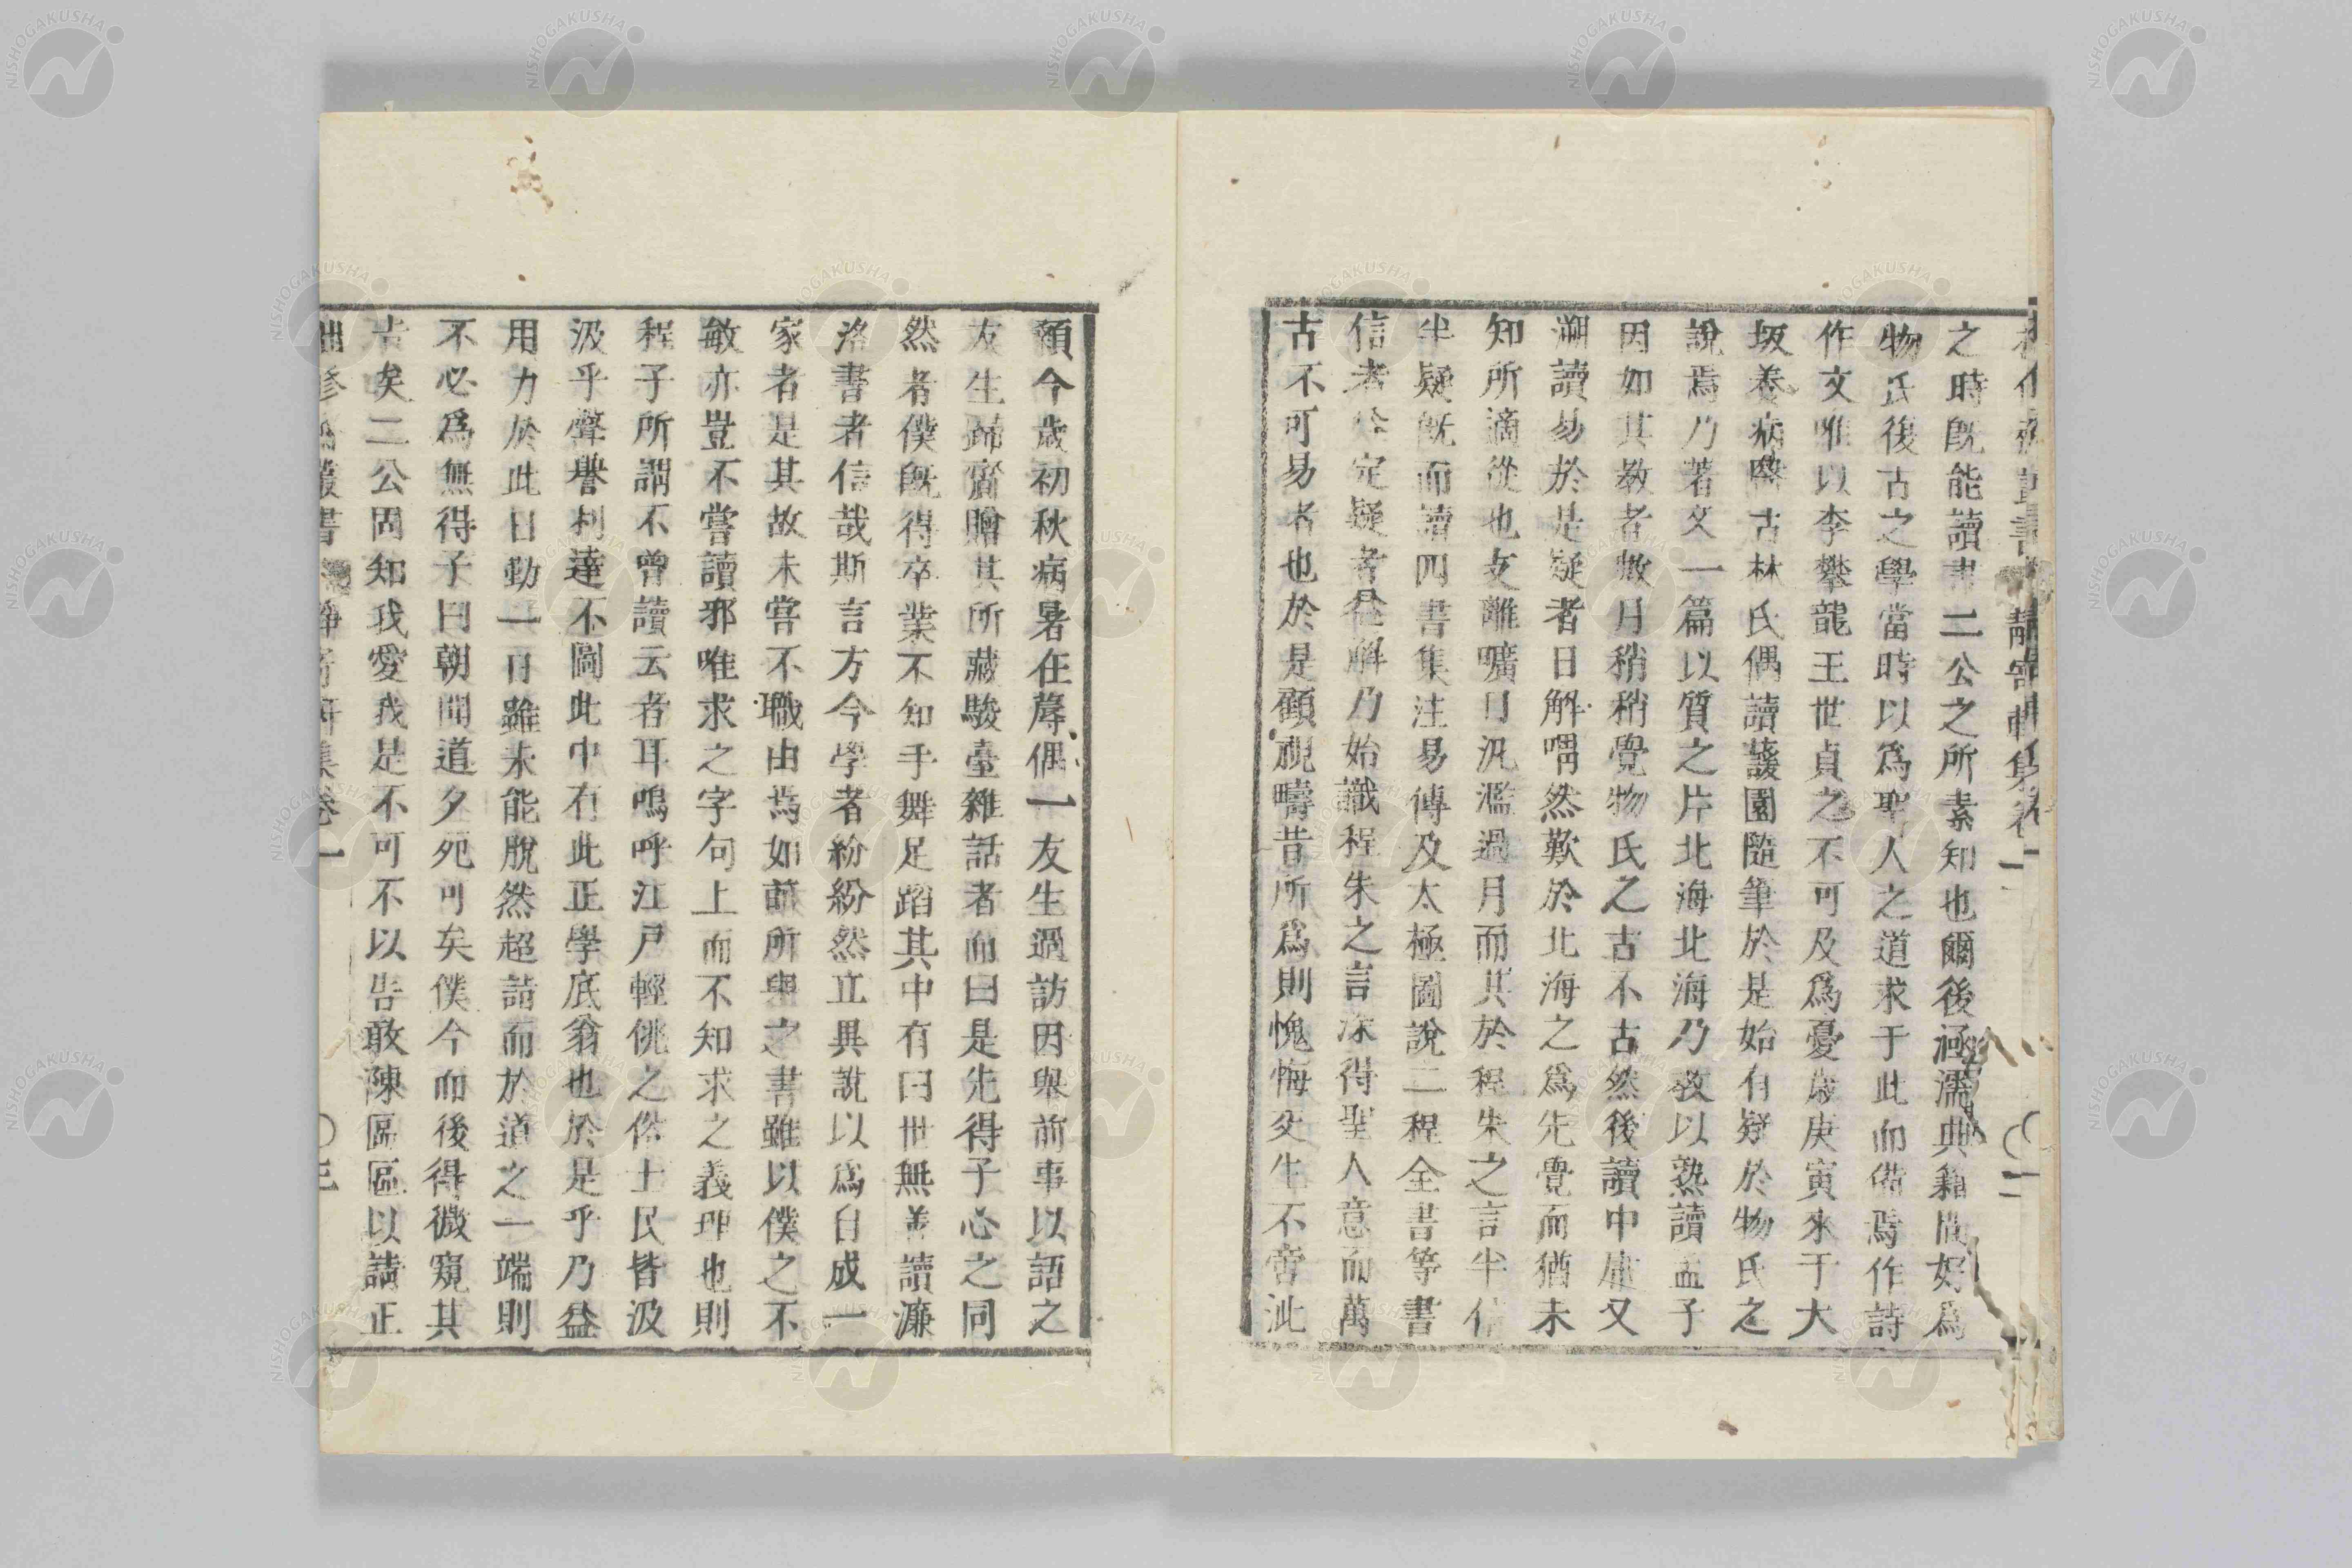 之時既能讀書二公之所素知也爾後涵濡典籍最好爲
物氏復古之學當時以爲聖人之道求于此而備焉作詩
作文唯以李攀龍王世貞之不可及爲憂歲庚寅來于大
坂養病醫古林氏偶讀蘐園隨筆於是始有疑於物氏之
說焉乃著文一篇以質之片北海北海乃敎以熟讀孟子
因如其敎者數月稍稍覺物氏之古不古然後讀中庸又
溯讀易於是疑者日解喟然歎於北海之爲先覺而猶未
知所適從也支離曠日汎濫過月而其於程朱之言半信
半疑既而讀四書集注易傳及太極圖說二程全書等書
信者益定疑者益解乃始識程朱之言深得聖人意而萬
古不可易者也於是顧視疇昔所爲則愧悔交生不啻泚
顙今歲初秋病暑在蓐偶一友生過訪因與前事以語之
友生歸齎贈其所藏駿臺雜話者而曰是先得子心之同
然者僕既得卒業不知手舞足蹈其中有曰世無善讀濂
洛書者信哉斯言方今學者紛紛然立異說以爲自成一
家者是其故未嘗不職由焉如前所與之書雖以僕之不
敏亦豈不嘗讀邪唯求之字句上而不知求之義理也則
程子所謂不曾讀云者耳嗚呼江戶輕佻之俗士民皆汲
汲乎聲譽利達不圖此中有此正學底翁也於是乎乃益
用力於此日勤一日雖未能脫然超詣而於道之一端則
不必爲無得子曰朝聞道夕死可矣僕今而後得微窺其
吉矣二公固知我愛我是不可不以告敢陳區區以請正